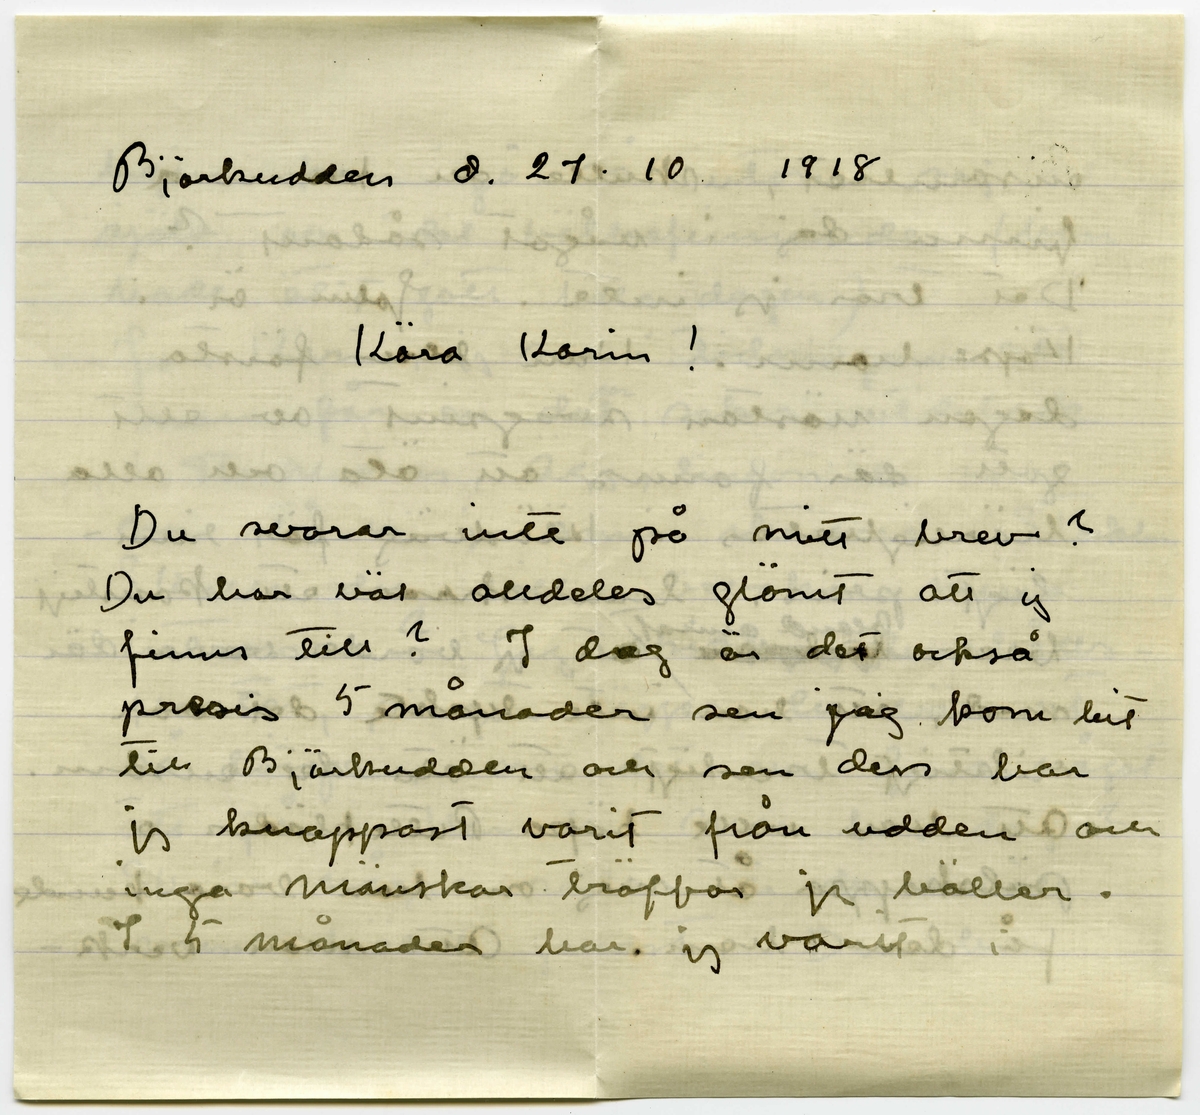 Björkudden d. 27. 10. 1918
Kära Karin!
Du svarar inte på mitt brev?
Du har väl alldeles glömt att jg
finns till? I dag är det också
presis 5 månader sen jag kom hit
till Björkudden och sen dess har
jg knappast varit från udden och
inga mänskor träffar jg häller.
I 5 månader har jg varit